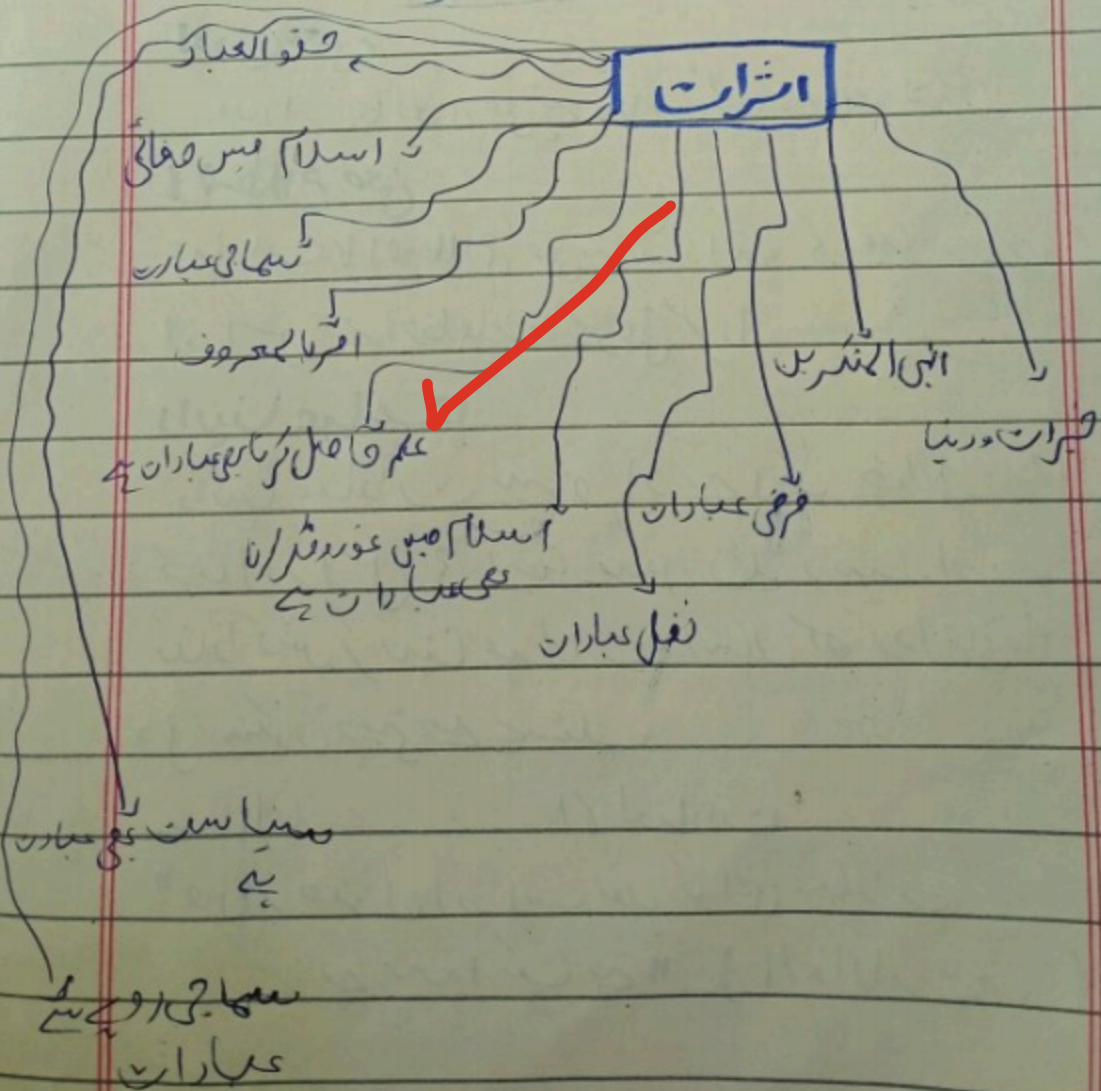 اثرات
حقوالعباد
اسلام میں صفائی
سماجی عبادت
امربالمعروف
علم حاصل کرنا بھی عبادات ہے
اسلام میں غوروفکر کرنا
بھی عبادات ہے
نفل عبادات
فرض عبادات
النہی المنکر
خیرات دینا
سیاست بھی عبادت
ہے
سماجی رویے
عبادات